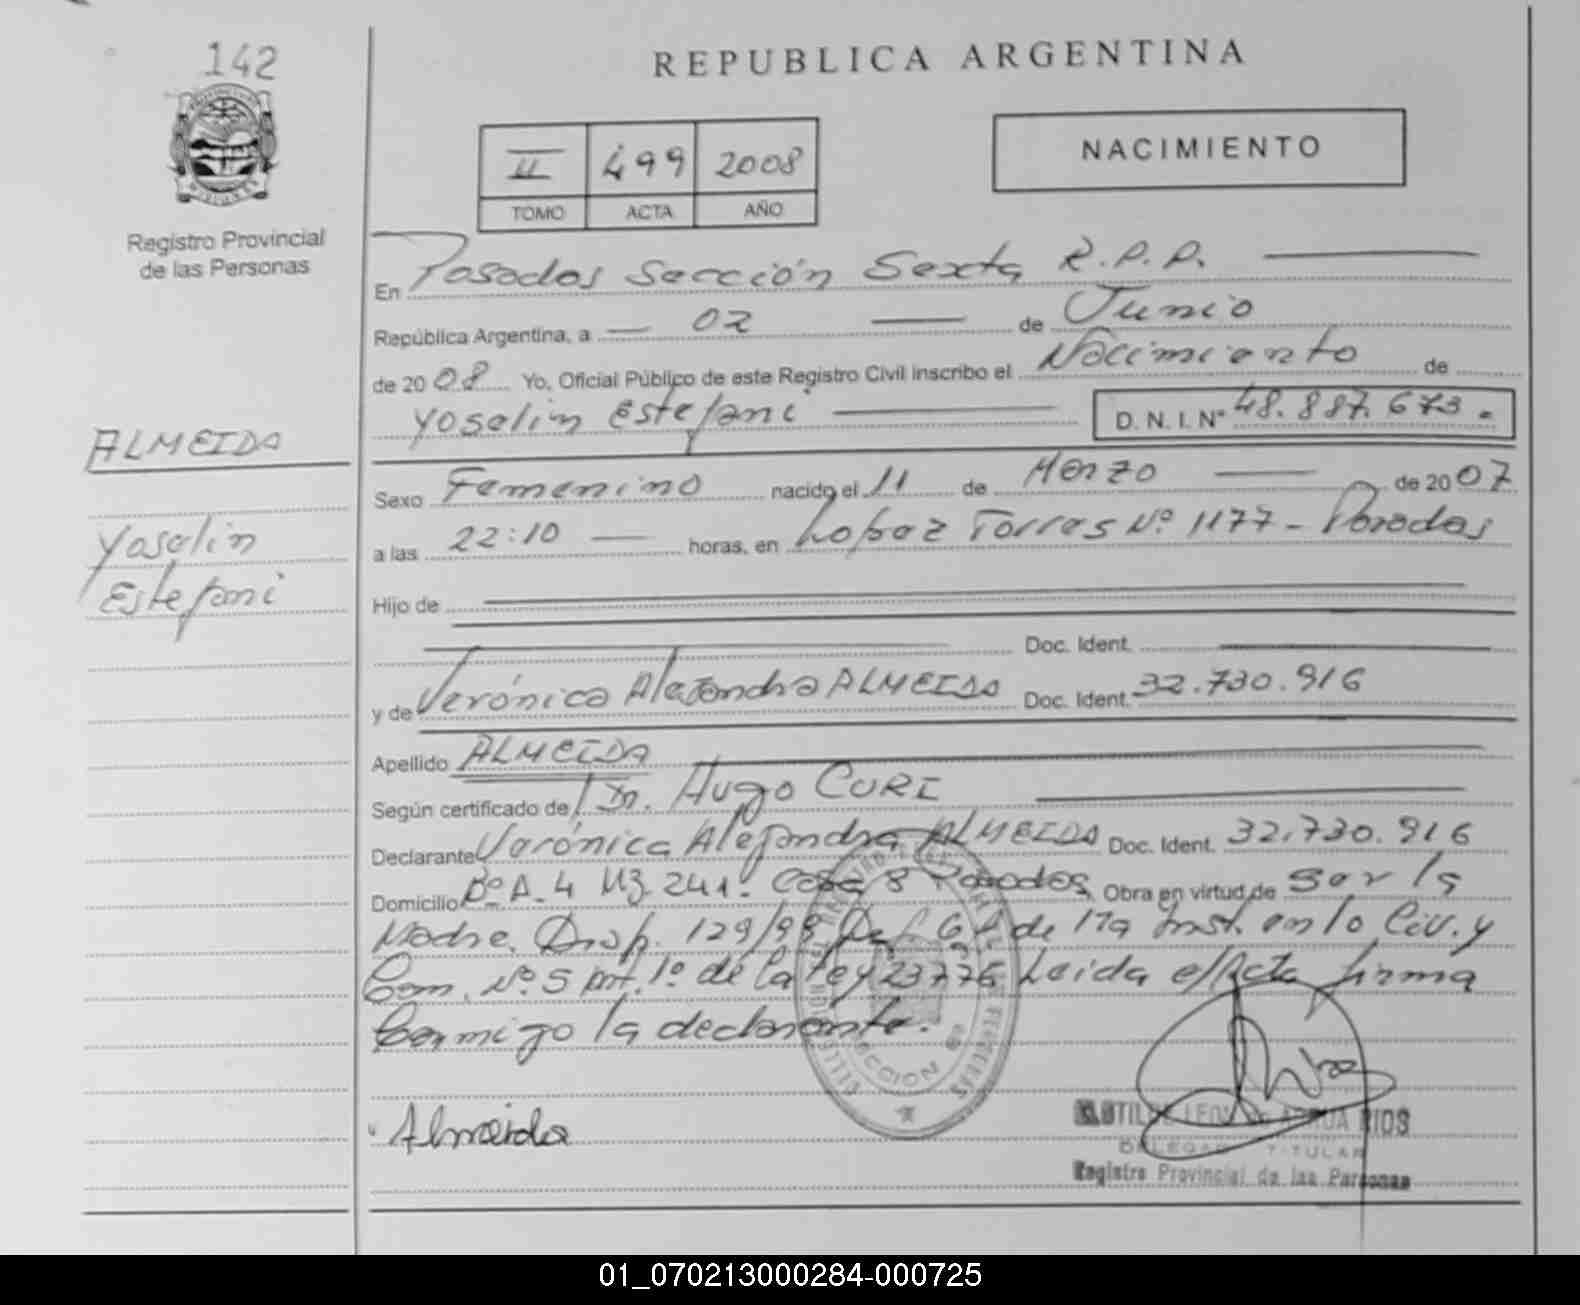 142
REPUBLICA ARGENTINA
II 499 2008
TOMO ACTA AÑO
NACIMIENTO
Registro Provincial
de las Personas
En Posadas Sección Sexta R.P.P.
República Argentina, a 02 de Junio
de 2008 Yo, Oficial Público de este Registro Civil inscribo el Nacimiento de
Yoselin Estefani D.N.I.Nº 48.887.673.
ALMEIDA
Yoselin
Estefani
Sexo Femenino nacido el 11 de Marzo de 2007
a las 22:10 horas, en Lopez Torres Nº 1177 - Posadas
Hijo de
Doc. Ident.
y de Verónica Alejandra ALMEIDA Doc. Ident. 32.730.916
Apellido ALMEIDA
Según certificado de Dr. Hugo CURI
Declarante Verónica Alejandra ALMEIDA Doc. Ident. 32.730.916
Domicilio Bº A-4 Mz. 241. Casa 8 Posadas Obra en virtud de ser la
Madre. Disp. 129/99 Def. de 1ra Inst. en lo Civ. y
Com. Nº 5 Art. 1º de la Ley 23776 Leida el Acta firma
Conmigo la declarante.
Almeida
SECCION
DELEGADA TITULAR
Registro Provincial de las Personas
01_070213000284-000725